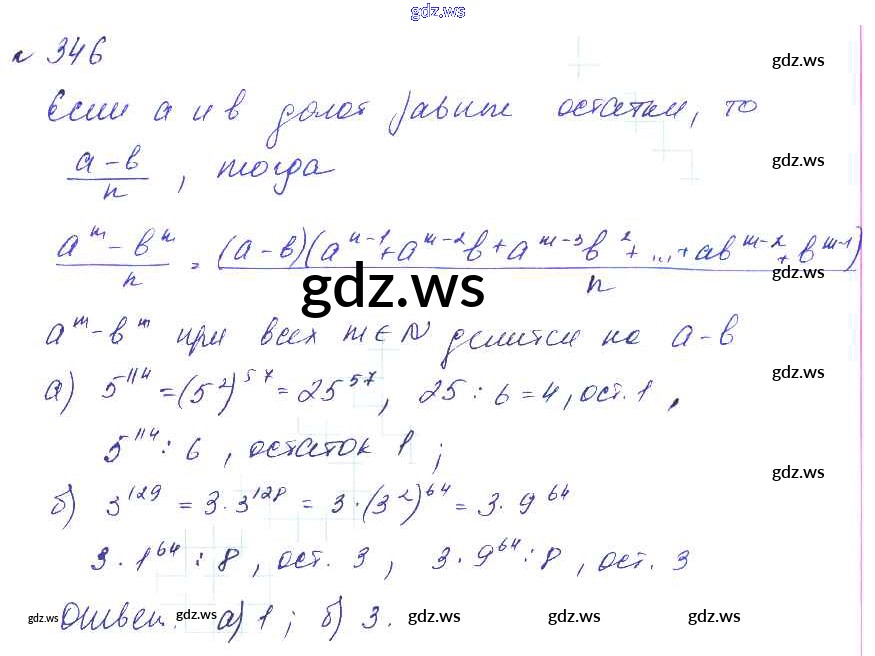 gdz.ws
№ 346
gdz.ws
Если а и в дают равные остатки, то
(а - в)/n, тогда
gdz.ws
(a^m - в^m)/n = (а - в)(a^(m-1) + a^(m-2)в + a^(m-3)в^2 + ... + aв^(m-2) + в^(m-1))/n
gdz.ws
gdz.ws
a^m - в^m при всех m ∈ N делится на а - в
gdz.ws
а) 5^114 = (5^2)^57 = 25^57, 25 : 6 = 4, ост. 1,
5^114 : 6, остаток 1;
gdz.ws
б) 3^129 = 3 · 3^128 = 3 · (3^2)^64 = 3 · 9^64
3 · 1^64 : 8, ост. 3, 3 · 9^64 : 8, ост. 3
gdz.ws Ответ. gdz.ws а) 1; б) 3. gdz.ws gdz.ws gdz.ws